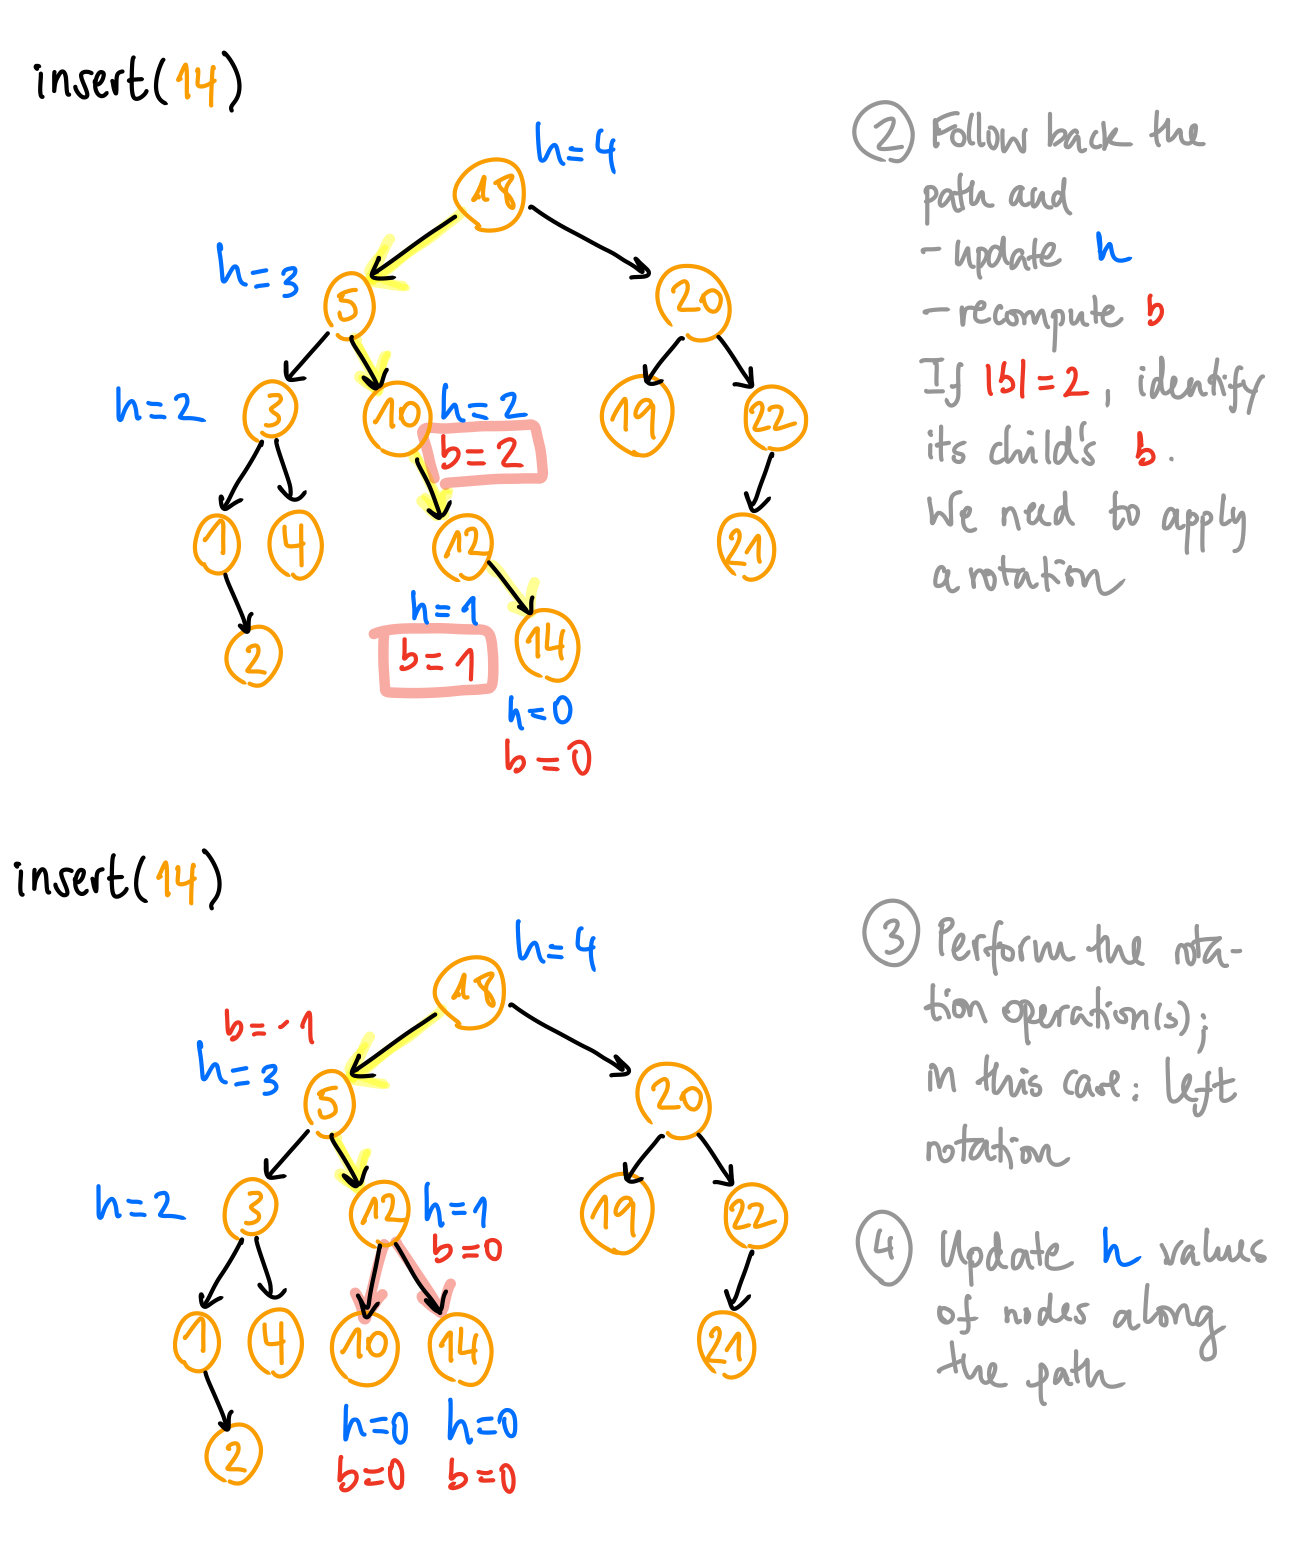 insert(14)
h=4
18
h=3
5
20
h=2
3
10
h=2
19
22
b=2
1
4
12
21
h=1
2
b=1
14
h=0
b=0
② Follow back the
path and
- update h
- recompute b
If |b|=2, identify
its child's b.
We need to apply
a rotation
insert(14)
h=4
18
b=-1
h=3
5
20
h=2
3
12
h=1
b=0
19
22
1
4
10
14
21
2
h=0
h=0
b=0
b=0
③ Perform the rota-
tion operation(s);
in this case: left
rotation
④ Update h values
of nodes along
the path